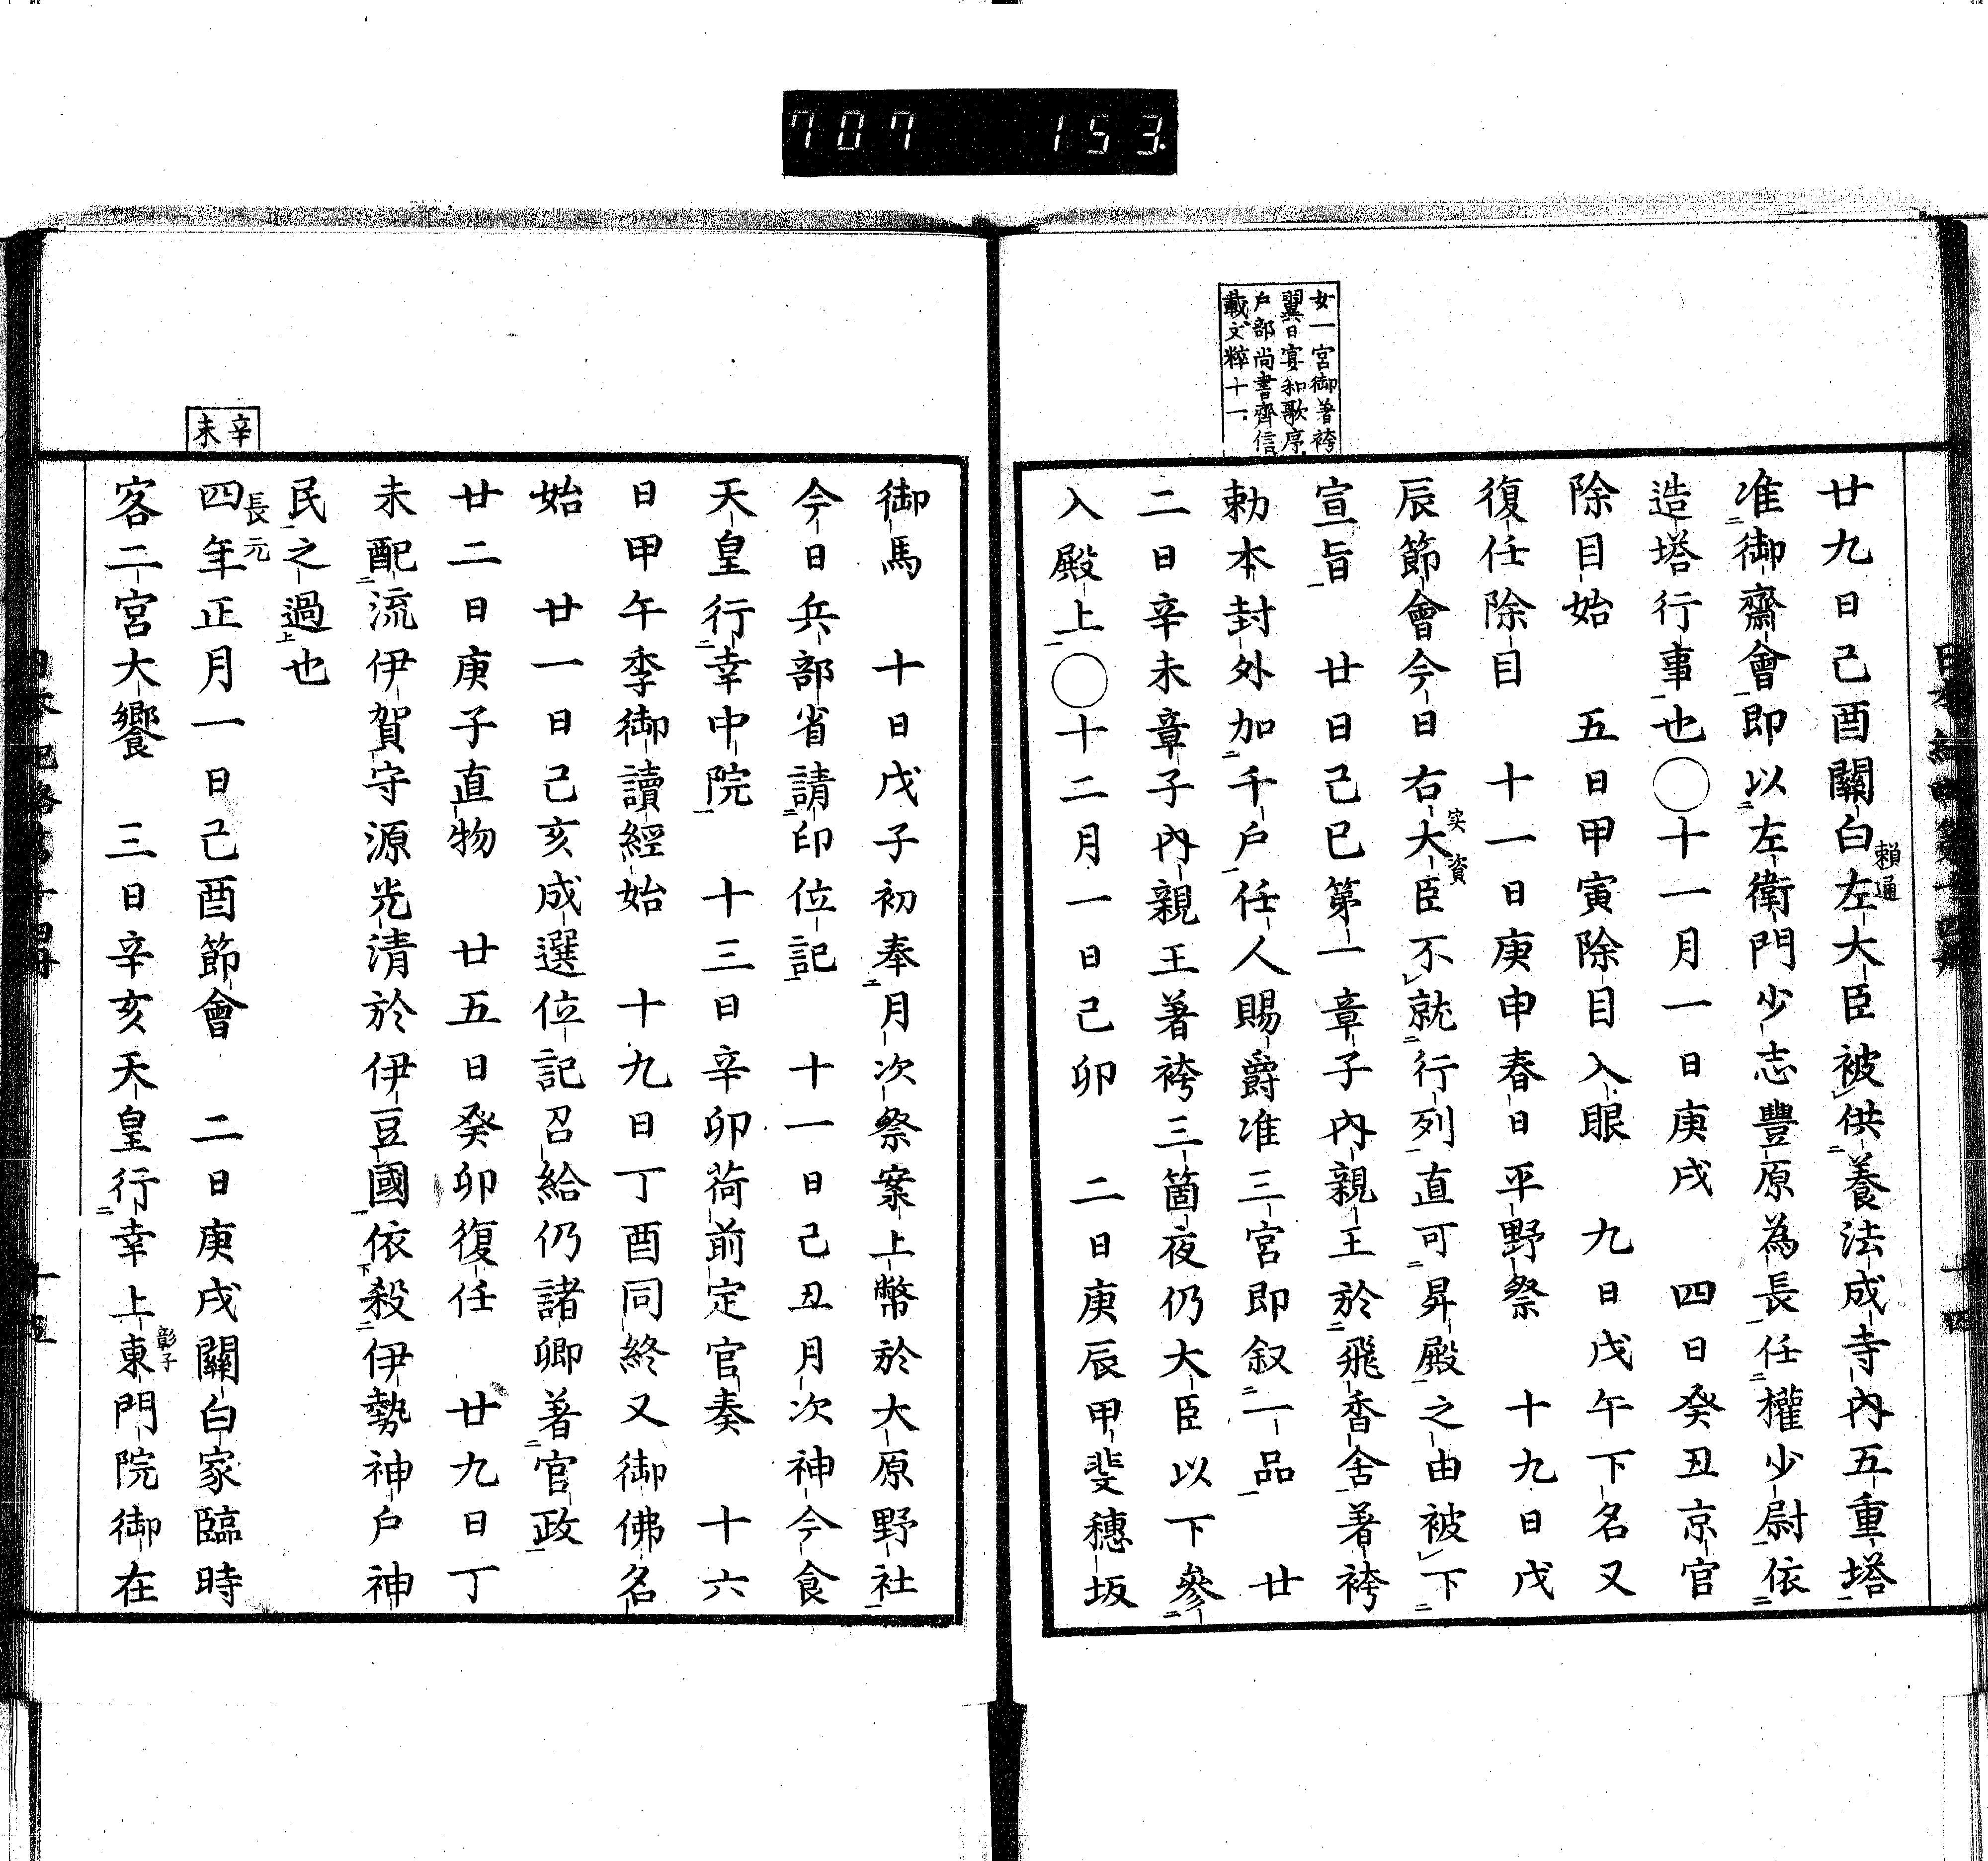 707 153
女一宮御著袴
翼日宴和歌序
戶部尚書齊信
載文粹十一
廿九日己酉關白左大臣被供養法成寺內五重塔
賴通
准御齋會即以左衛門少志豐原為長任權少尉依
造塔行事也〇十一月一日庚戌 四日癸丑京官
除目始 五日甲寅除目入眼 九日戊午下名又
復任除目 十一日庚申春日平野祭 十九日戊
辰節會今日右大臣不就行列直可昇殿之由被下
実資
宣旨 廿日己巳第一章子內親王於飛香舍著袴
勅本封外加千戶任人賜爵准三宮即叙一品 廿
二日辛未章子內親王著袴三箇夜仍大臣以下參
入殿上〇十二月一日己卯 二日庚辰甲斐穗坂
御馬 十日戊子初奉月次祭案上幣於大原野社
今日兵部省請印位記 十一日己丑月次神今食
天皇行幸中院 十三日辛卯荷前定官奏 十六
日甲午季御讀經始 十九日丁酉同終又御佛名
始 廿一日己亥成選位記召給仍諸卿著官政
廿二日庚子直物 廿五日癸卯復任 廿九日丁
未配流伊賀守源光清於伊豆國依殺伊勢神戶神
民之過也
辛未
四年正月一日己酉節會 二日庚戌關白家臨時
長元
客二宮大饗 三日辛亥天皇行幸上東門院御在
彰子